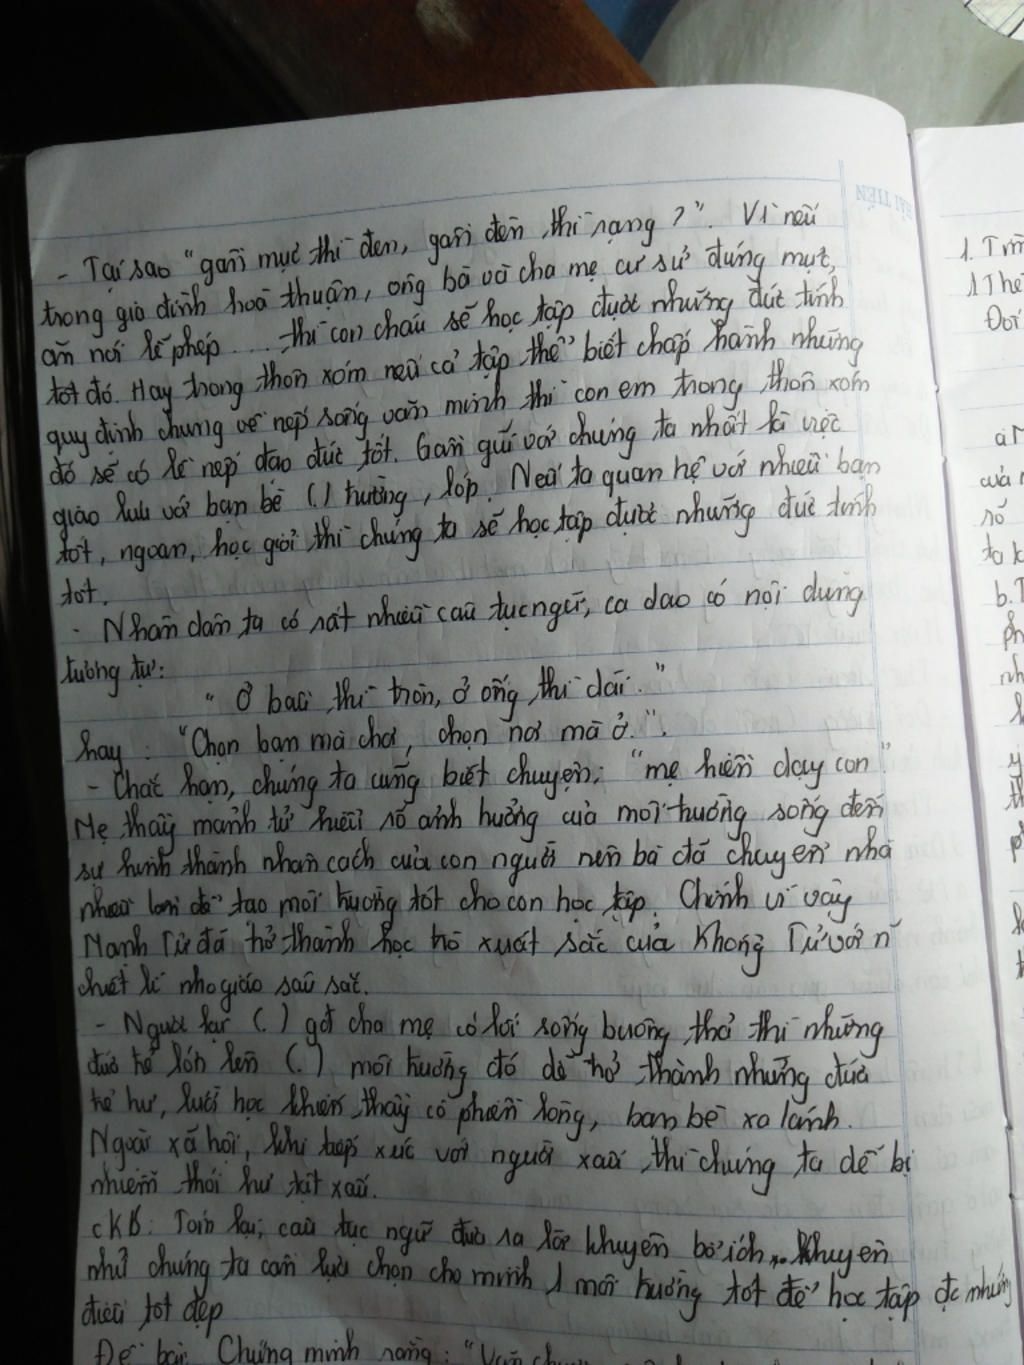 - Tại sao "gần mực thì đen, gần đèn thì rạng?". Vì nếu
trong gia đình hoà thuận, ông bà và cha mẹ cư sử đúng mực,
ăn nói lễ phép .... thì con cháu sẽ học tập được những đức tính
tốt đó. Hay trong thôn xóm nếu cả tập thể biết chấp hành những
quy định chung về nếp sống văn minh thì con em trong thôn xóm
đó sẽ có lề nếp đạo đức tốt. Gần gũi với chúng ta nhất là việc
giao lưu với bạn bè (.) trường, lớp. Nếu ta quan hệ với nhiều bạn
tốt, ngoan, học giỏi thì chúng ta sẽ học tập được những đức tính
tốt.
- Nhân dân ta có rất nhiều câu tục ngữ, ca dao có nội dung
tương tự:
" Ở bầu thì tròn, ở ống thì dài."
hay : "Chọn bạn mà chơi, chọn nơi mà ở.".
- Chắc hạn, chúng ta cũng biết chuyện: "mẹ hiền dạy con"
Mẹ thầy mạnh tử hiểu rõ ảnh hưởng của môi trường sống đến
sự hình thành nhân cách của con người nên bà đã chuyển nhà
nhiều lần để tạo môi trường tốt cho con học tập. Chính vì vậy
Mạnh Tử đã trở thành học trò xuất sắc của Khổng Tử với
triết lí nho giáo sâu sắc.
- Ngược lại (.) gđ cha mẹ có lối sống buông thả thì những
đứa trẻ lớn lên (.) môi trường đó dễ trở thành những đứa
trẻ hư, lười học khiến thầy cô phiền lòng, bạn bè xa lánh.
Ngoài xã hội, khi tiếp xúc với người xấu thì chúng ta dễ bị
nhiễm thói hư tật xấu.
Tóm lại, câu tục ngữ đưa ra lời khuyên bổ ích, .. khuyên
nhủ chúng ta cần lựa chọn cho mình 1 môi trường tốt để học tập đc những
điều tốt đẹp
Đề bài: Chứng minh rằng: "Văn
1.